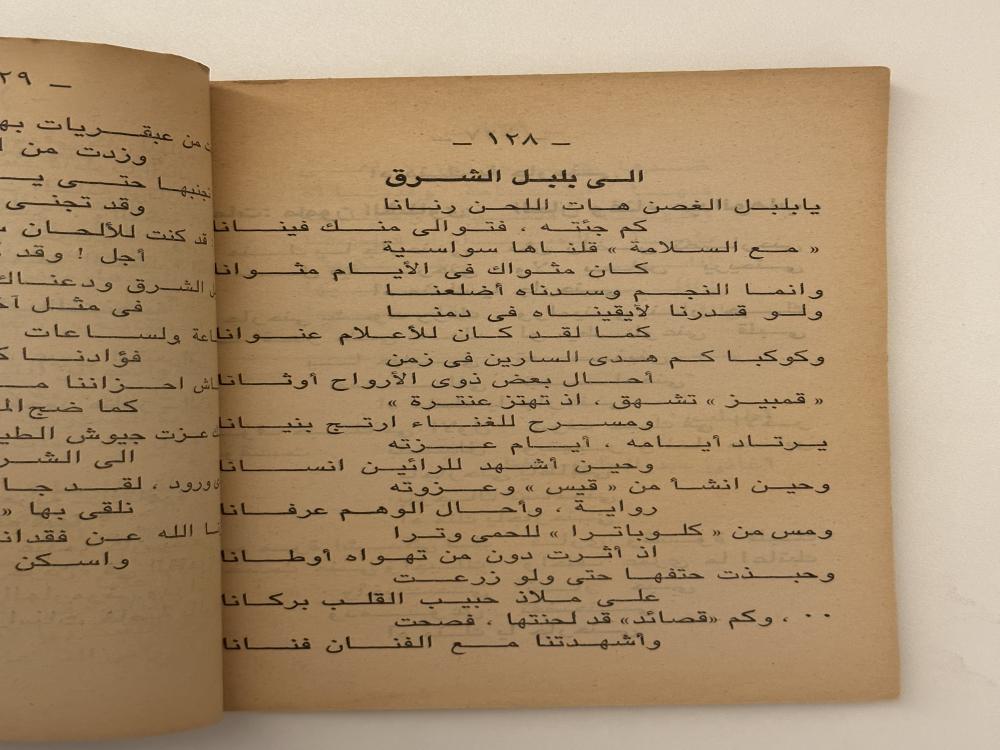 — ١٢٨ —
الى بلبل الشرق
يابلبل الغصن هات اللحن رنانا
كم جئته ، فتوالى منك فينانا
« مع السلامة » قلناها سواسية
كان مثواك فى الأيام مثوانا
وانما النجم وسدناه أضلعنا
ولو قدرنا لأيقيناه فى دمنا
كما لقد كان للأعلام عنوانا
وكوكبا كم هدى السارين فى زمن
أحال بعض ذوى الأرواح أوثانا
« قمبيز » تشهق ، اذ تهتز عنترة »
ومسرح للغناء ارتج بنيانا
يرتاد أيامه ، أيام عزته
وحين أشهد للرائين انسانا
وحين انشأ من « قيس » وعزوته
رواية ، وأحال الوهم عرفانا
ومس من « كلوباترا » للحمى وترا
اذ أثرت دون من تهواه أوطانا
وحبذت حتفها حتى ولو زرعت
على ملاذ حبيب القلب بركانا
٠٠ ، وكم «قصائد» قد لحنتها ، فصحت
وأشهدتنا مع الفنان فنانا
٢٩ —
من عبقريات
وزدت من
تجنبها حتى
وقد تجنى
قد كنت للألحان
أجل ! وقد
الشرق ودعناك
فى مثل
ولساعات
فؤادنا
احزاننا
كما ضج
عزت جيوش
الى
ورود ، لقد
نلقى بها «
الله عن
واسكن